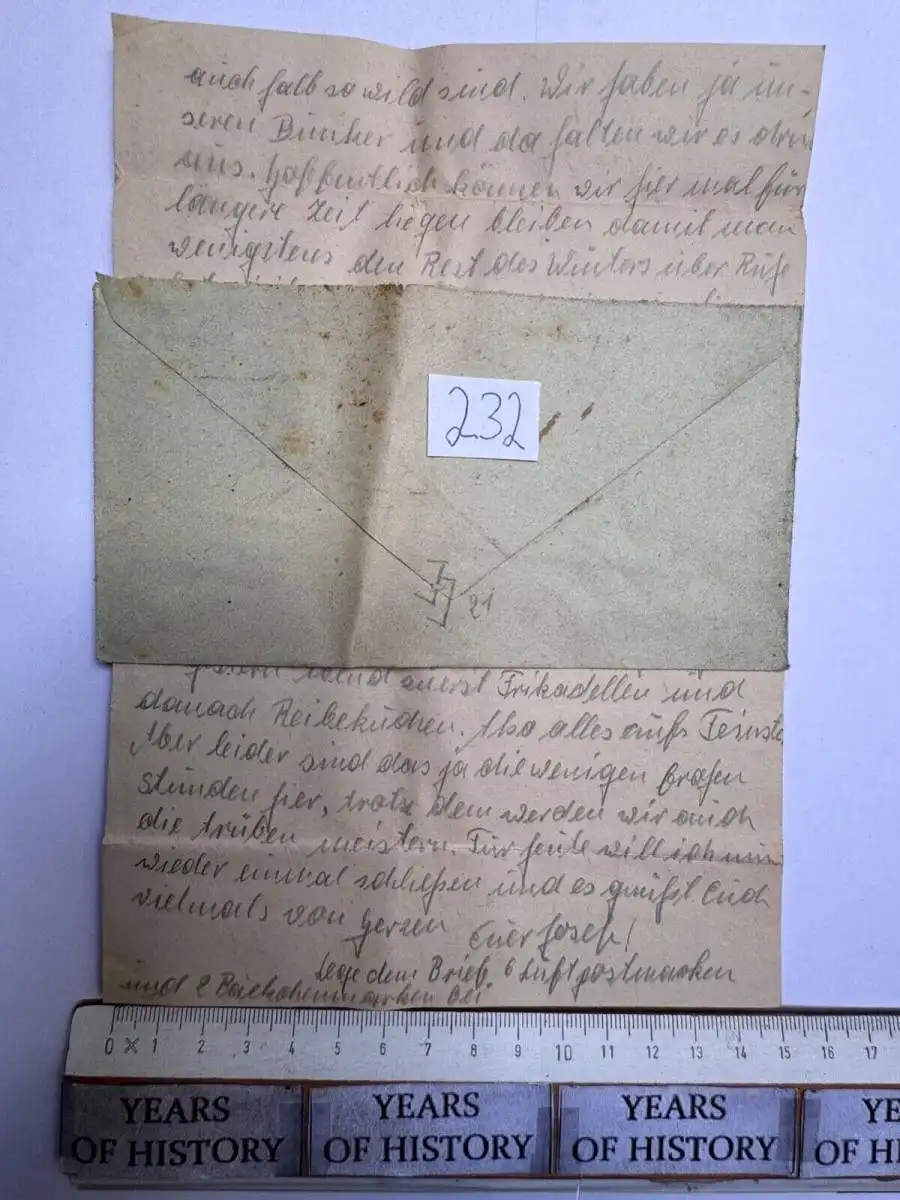 auch halb so wild sind. Wir haben ja un-
seren Bunker und da halten wir es drin
aus. Hoffentlich können wir hier mal für
längere Zeit liegen bleiben damit man
wenigstens den Rest des Winters über Ruhe
232
21
zuerst Frikadellen und
danach Reibekuchen. Also alles aufs Feinste.
Aber leider sind das ja die wenigen großen
Stunden hier, trotz dem werden wir auch
die trüben meistern. Für heute will ich nun
wieder einmal schließen und es grüßt Euch
vielmals von Herzen Euer Josef!
Lege dem Brief 6 Luftpostmarken
und 2 Päckchenmarken bei
0 1 2 3 4 5 6 7 8 9 10 11 12 13 14 15 16 17
YEARS OF HISTORY
YEARS OF HISTORY
YEARS OF HISTORY
YE
OF H